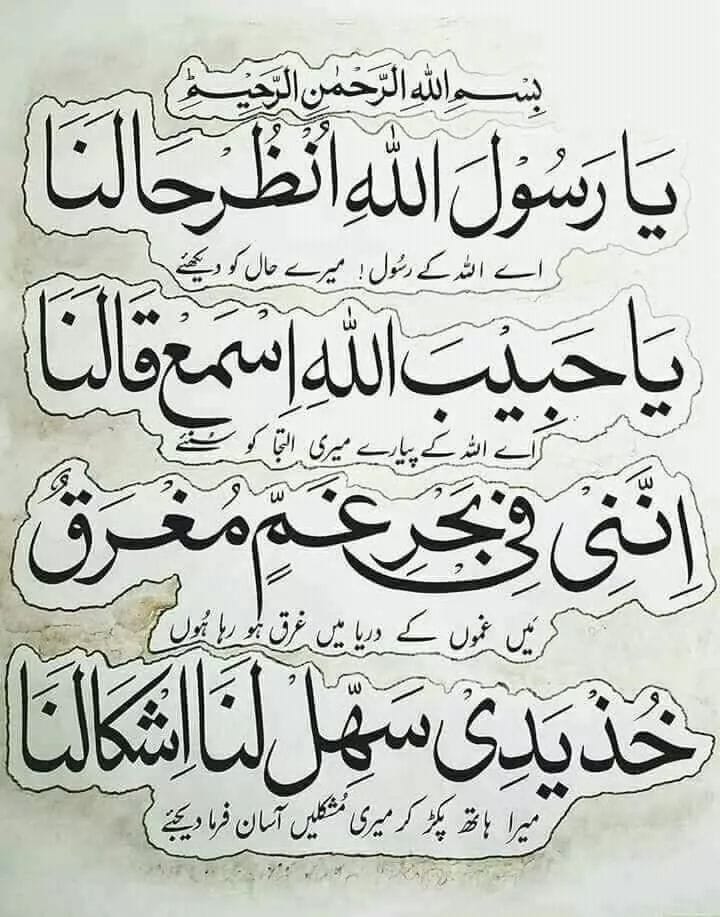 بِسْمِ اللهِ الرَّحْمٰنِ الرَّحِيْمِ
يَا رَسُوْلَ اللّٰهِ اُنْظُرْ حَالَنَا
اے اللہ کے رسُول! میرے حال کو دیکھئے
يَا حَبِيْبَ اللّٰهِ اِسْمَعْ قَالَنَا
اَے اللہ کے پیارے میری التجا کو سُنئے
اِنَّنِيْ فِيْ بَحْرِ غَمٍّ مُغْرَقٌ
مَیں غموں کے دریا میں غرق ہو رہا ہُوں
خُذْ يَدِيْ سَهِّلْ لَنَا اِشْكَالَنَا
میرا ہاتھ پکڑ کر میری مُشکلیں آسان فرما دیجئے